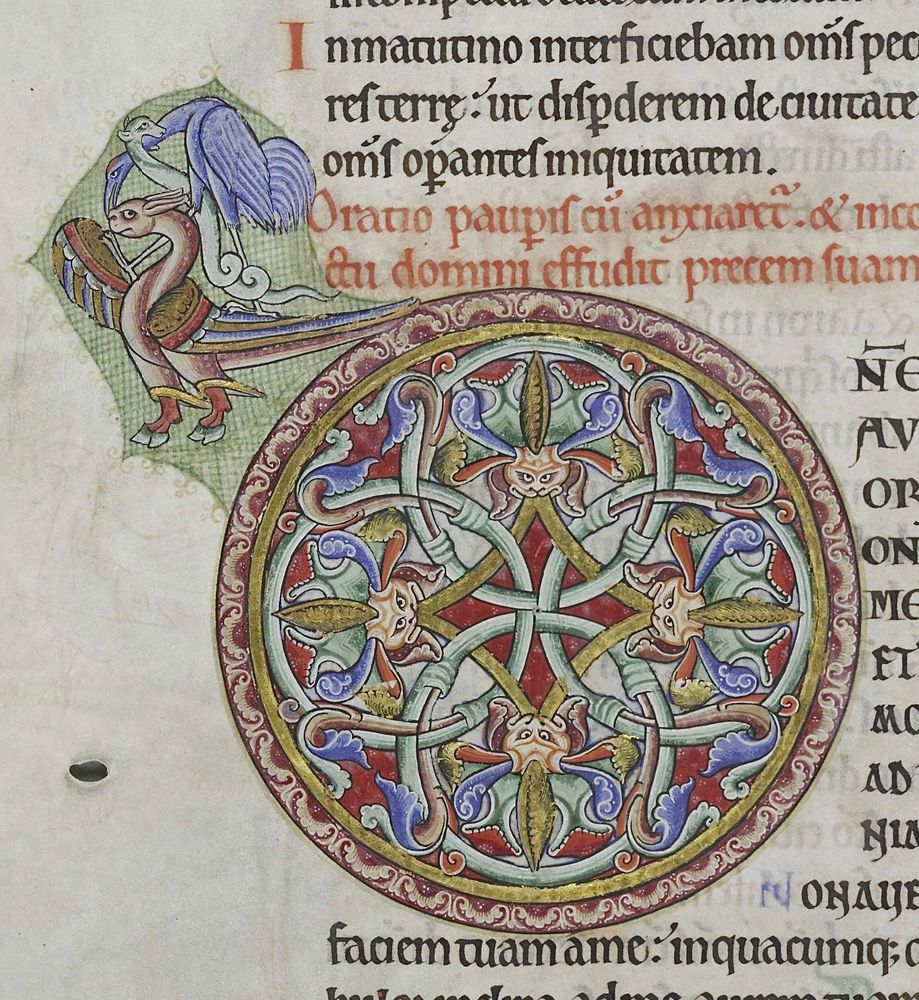 In matutino interficiebam om̅s pec
res terrę: ut disp̲derem de ciuitate
om̅s op̲antes iniquitatem.
Oratio paup̲is cu̅ anxiaret̃. & ince
ctu domini effudit precem suam
D
N̅E
AV
OR
ON
ME
ET
MO
AD
NIA
NON AVE
faciem tuam a me: in quacumq;